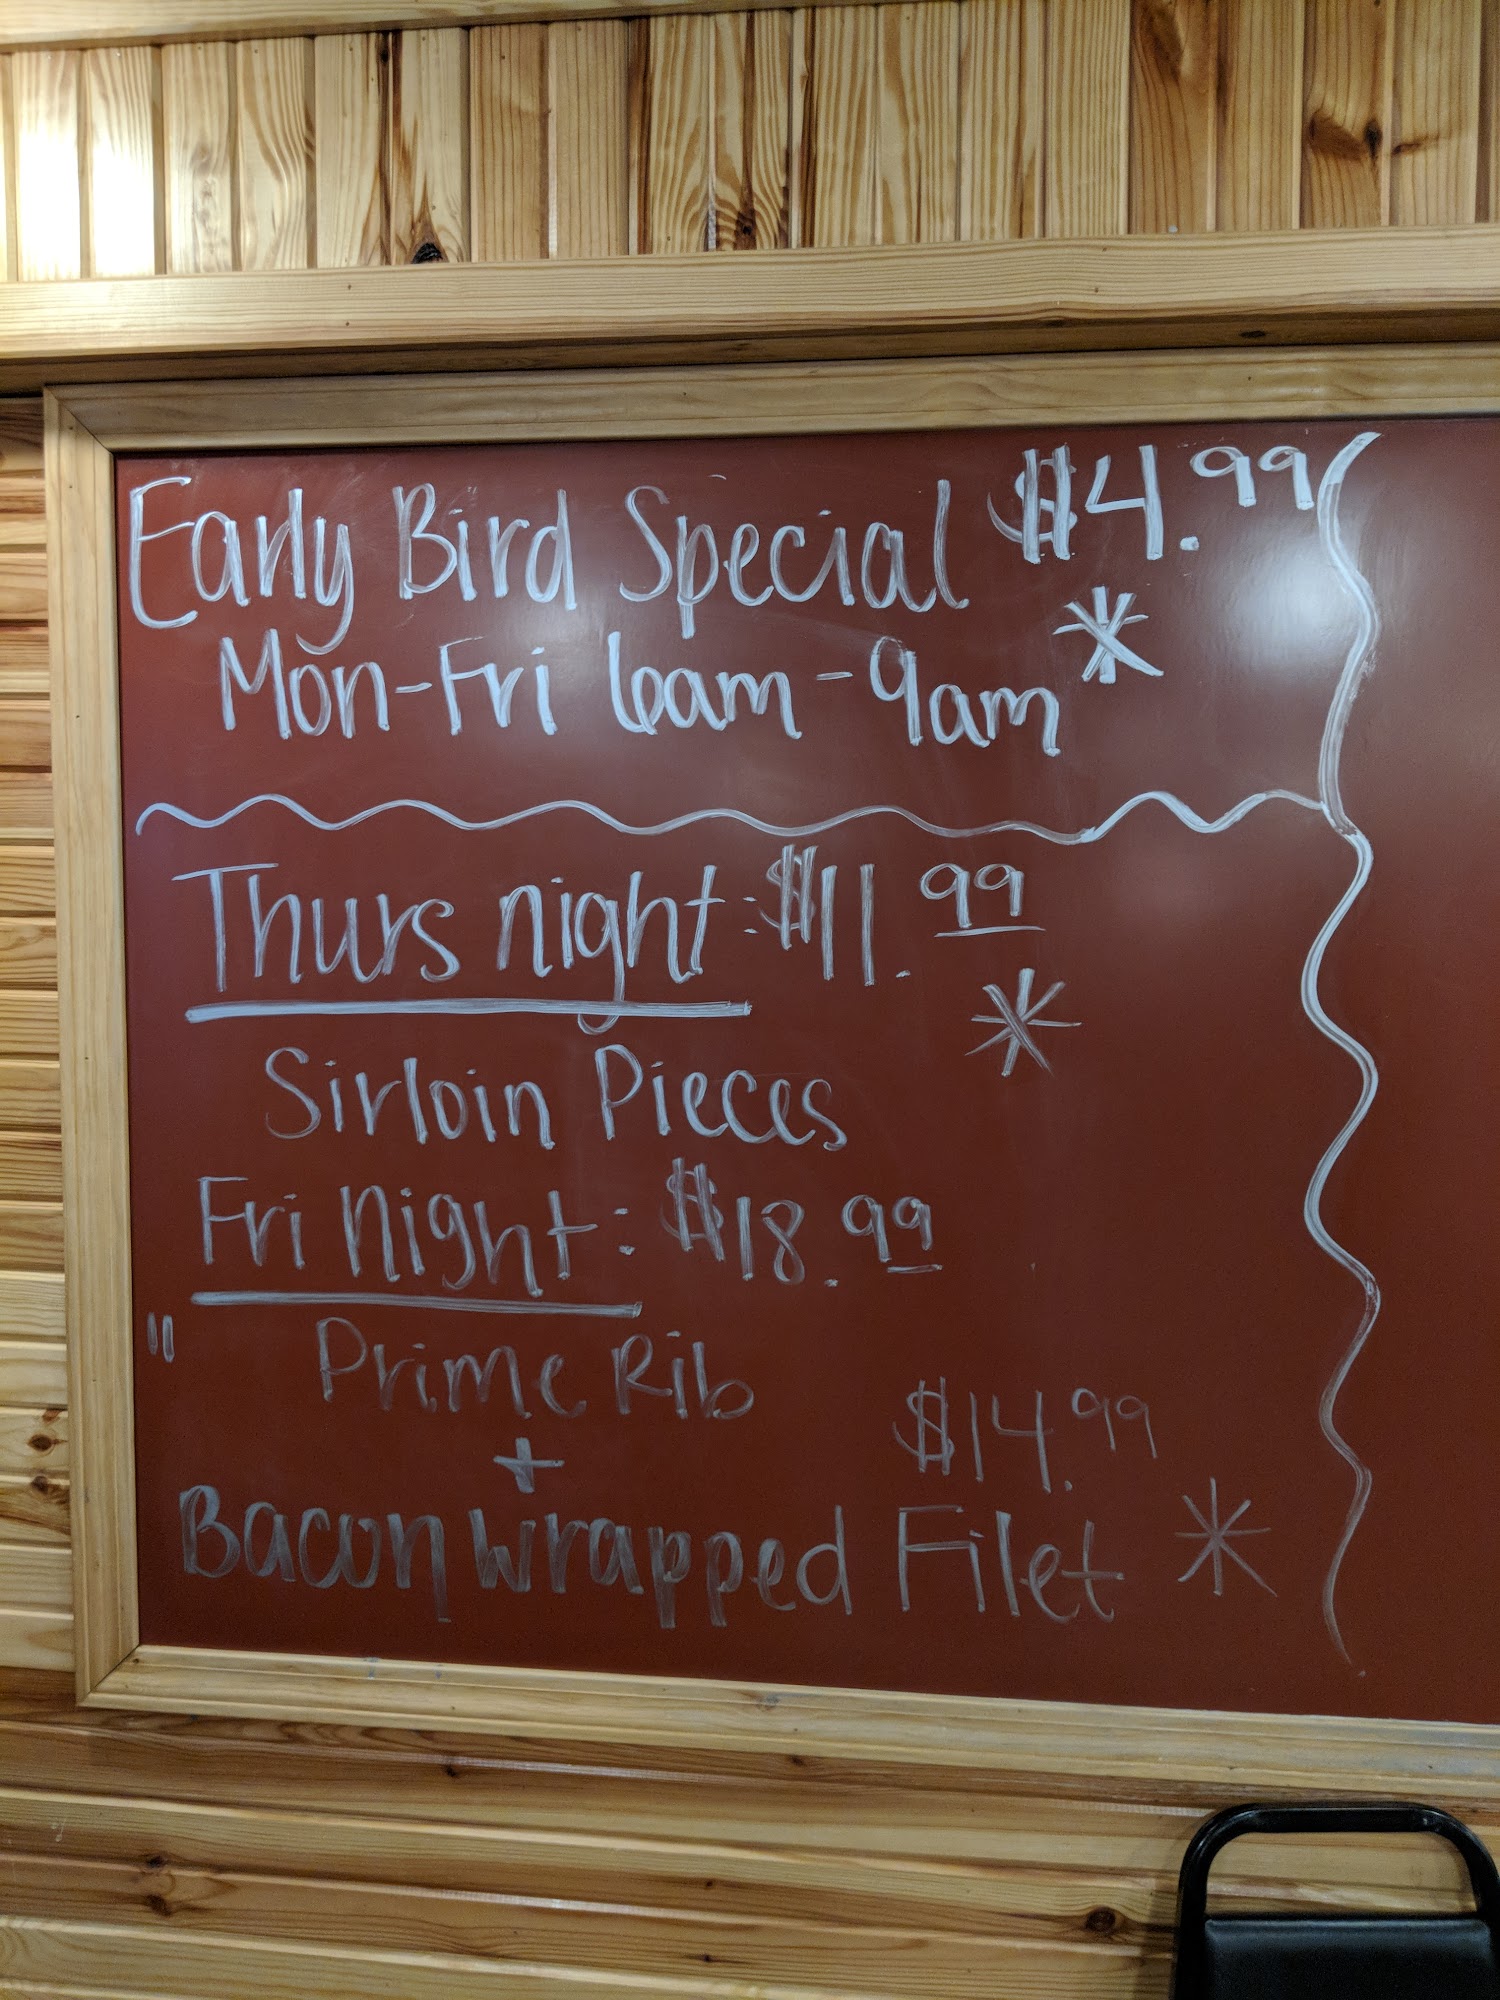 Early Bird Special $4.99
*
Mon-Fri 6am-9am
Thurs night: $11.99
*
Sirloin Pieces
Fri night: $18.99
" Prime Rib
+
$14.99
Bacon wrapped Filet *